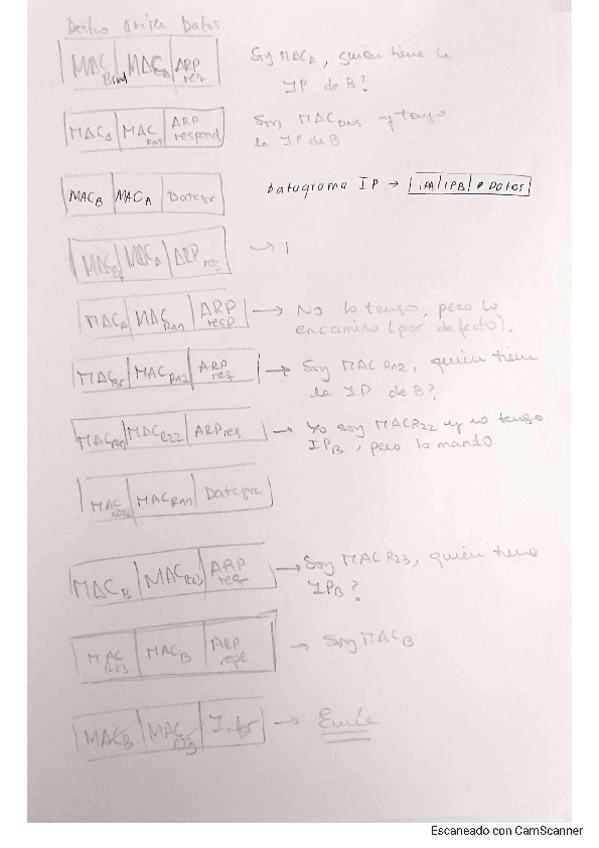 Destino Origen Datos
MAC Brod MAC A ARP req
Soy MAC A, quién tiene la
IP de B?
MAC A MAC DNS ARP respond
Soy MAC DNS y tengo
la IP de B
MAC B MAC A Datagr
Datagrama IP → IPA IPB Datos
MAC A ARP req
MAC A MAC ARP resp → No lo tengo, pero lo
encamino (por defecto).
MAC Br MAC RA2 ARP req → Soy MAC RA2, quién tiene
la IP de B?
MAC MAC R22 ARP res → Yo soy MAC R22 y no tengo
IPB, pero lo mando
MAC MAC Datagr
MAC B MAC R23 ARP req → Soy MAC R23, quién tiene
IPB?
MAC R23 MAC B ARP repl → Soy MAC B
MAC B MAC Infor → Envía
Escaneado con CamScanner